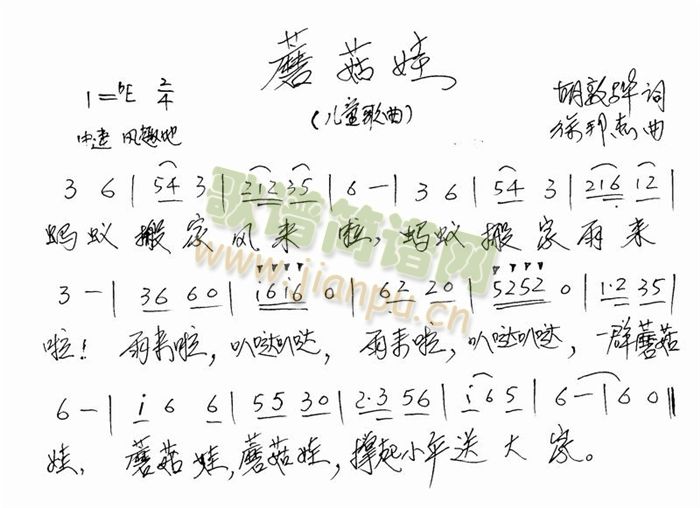 蘑菇娃
(儿童歌曲)
1=♭E 2/4
中速 风趣地
词
曲
3 6 | 54 3 | 212 35 | 6 — | 3 6 | 54 3 | 216 12 |
蚂蚁搬家风来啦，蚂蚁搬家雨来
3 — | 36 60 | i6i6 0 | 62 20 | 5252 0 | 1·2 35 |
啦！雨来啦，叭哒叭哒，雨来啦，叭哒叭哒，一群蘑菇
6 — | i 6 6 | 55 30 | 2·3 56 | i6 5 | 6 — | 6 0 ‖
娃，蘑菇娃，蘑菇娃，撑起小伞送大家。
歌谱简谱网
www.jianpu.cn